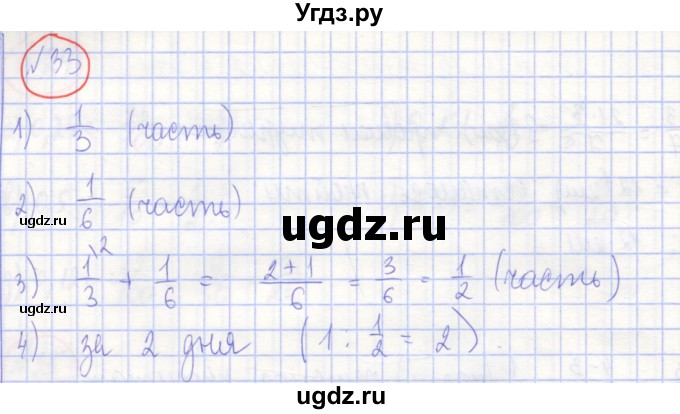 Угдз.ру
№33
1) 1/3 (часть)
2) 1/6 (часть)
ugdz.ru
ugdz.ru
ugdz.ru
3) 1/3\2 + 1/6 = (2+1)/6 = 3/6 = 1/2 (часть)
ugdz.ru
ugdz.ru
4) за 2 дня (1 : 1/2 = 2).
ugdz.ru
ugdz.ru